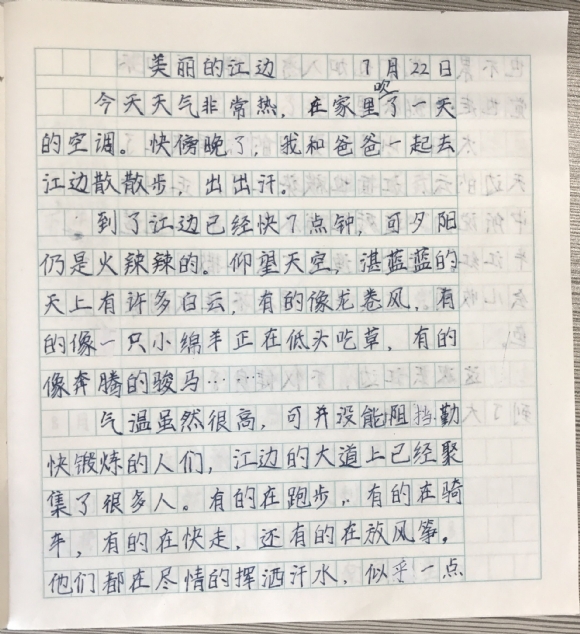 美丽的江边 7月22日
今天天气非常热，在家里吹了一天
的空调。快傍晚了，我和爸爸一起去
江边散散步，出出汗。
到了江边已经快7点钟，可夕阳
仍是火辣辣的。仰望天空，湛蓝蓝的
天上有许多白云，有的像龙卷风，有
的像一只小绵羊正在低头吃草，有的
像奔腾的骏马……
气温虽然很高，可并没能阻挡勤
快锻炼的人们，江边的大道上已经聚
集了很多人。有的在跑步，有的在骑
车，有的在快走，还有的在放风筝。
他们都在尽情的挥洒汗水，似乎一点